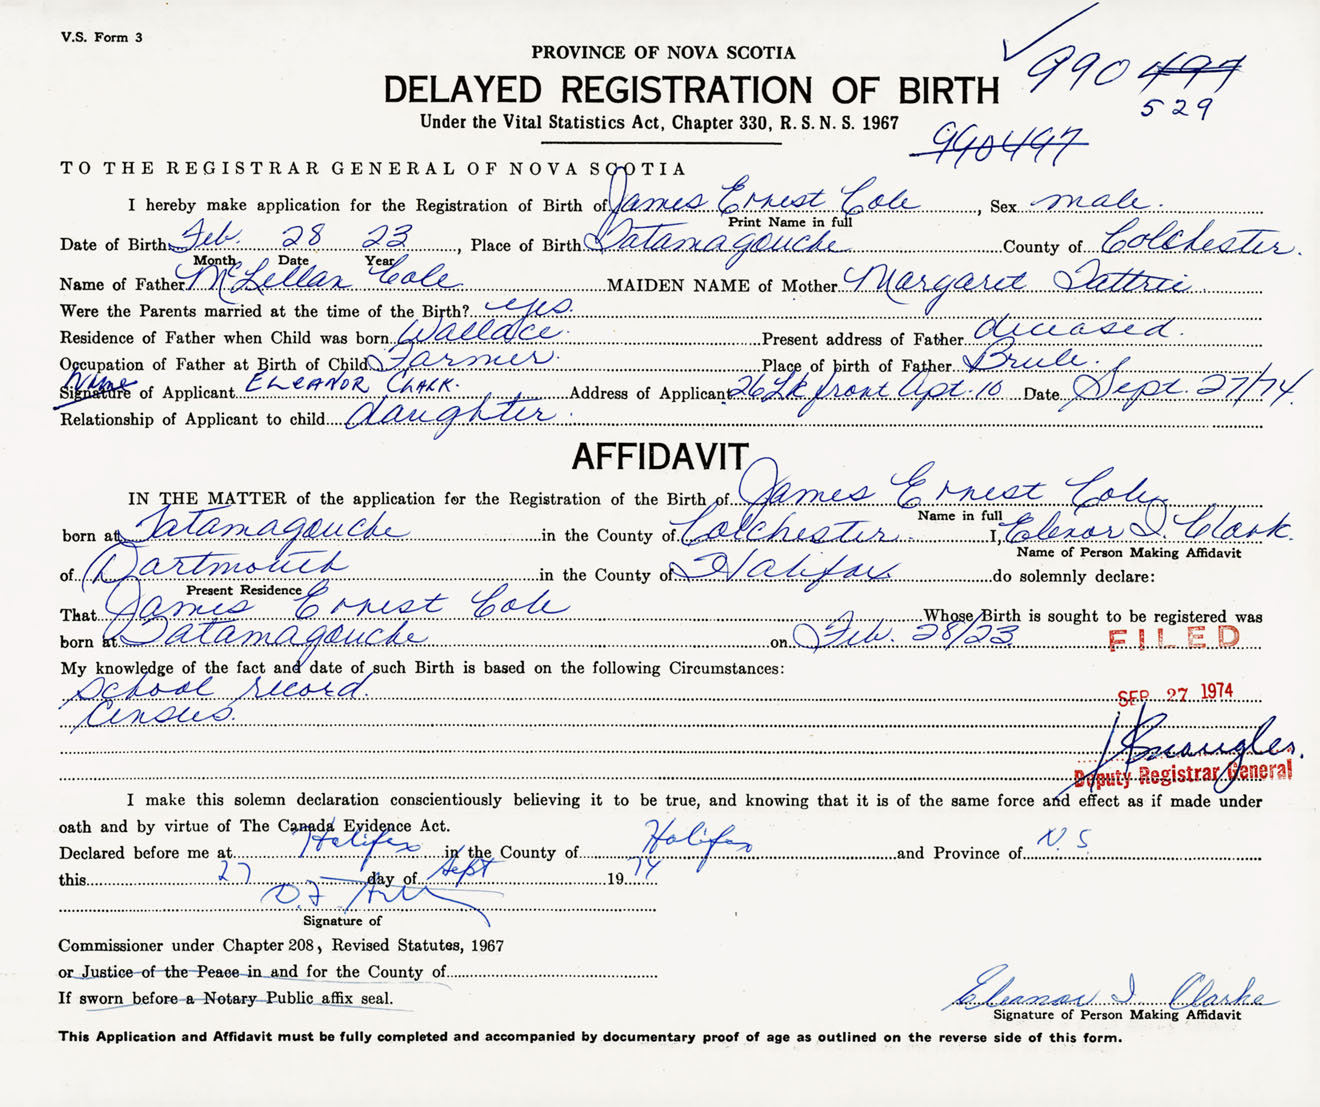 V.S. Form 3
PROVINCE OF NOVA SCOTIA
DELAYED REGISTRATION OF BIRTH
990 497
529
Under the Vital Statistics Act, Chapter 330, R. S. N. S. 1967
990497
TO THE REGISTRAR GENERAL OF NOVA SCOTIA
I hereby make application for the Registration of Birth of James Ernest Cole, Sex male.
Print Name in full
Date of Birth Feb. 28 23, Place of Birth Tatamagouche County of Colchester.
Month Date Year
Name of Father McLellan Cole MAIDEN NAME of Mother Margaret Tattrie
Were the Parents married at the time of the Birth? yes.
Residence of Father when Child was born Wallace. Present address of Father deceased.
Occupation of Father at Birth of Child Farmer. Place of birth of Father Brule.
Name
Signature of Applicant ELEANOR CLARK. Address of Applicant 26 Lk front Apt. 10 Date Sept. 27/74.
Relationship of Applicant to child daughter.
AFFIDAVIT
IN THE MATTER of the application for the Registration of the Birth of James Ernest Cole
Name in full
born at Tatamagouche in the County of Colchester. I, Elenor I. Clark.
Name of Person Making Affidavit
of Dartmouth in the County of Halifax do solemnly declare:
Present Residence
That James Ernest Cole Whose Birth is sought to be registered was
born at Tatamagouche on Feb. 28/23
FILED
My knowledge of the fact and date of such Birth is based on the following Circumstances:
School record.
SEP 27 1974
Census.
Deputy Registrar General
I make this solemn declaration conscientiously believing it to be true, and knowing that it is of the same force and effect as if made under
oath and by virtue of The Canada Evidence Act.
Declared before me at Halifax in the County of Halifax and Province of N. S.
this 27 day of Sept 19 74
Signature of
Commissioner under Chapter 208, Revised Statutes, 1967
or Justice of the Peace in and for the County of
If sworn before a Notary Public affix seal.
Eleanor I Clarke
Signature of Person Making Affidavit
This Application and Affidavit must be fully completed and accompanied by documentary proof of age as outlined on the reverse side of this form.